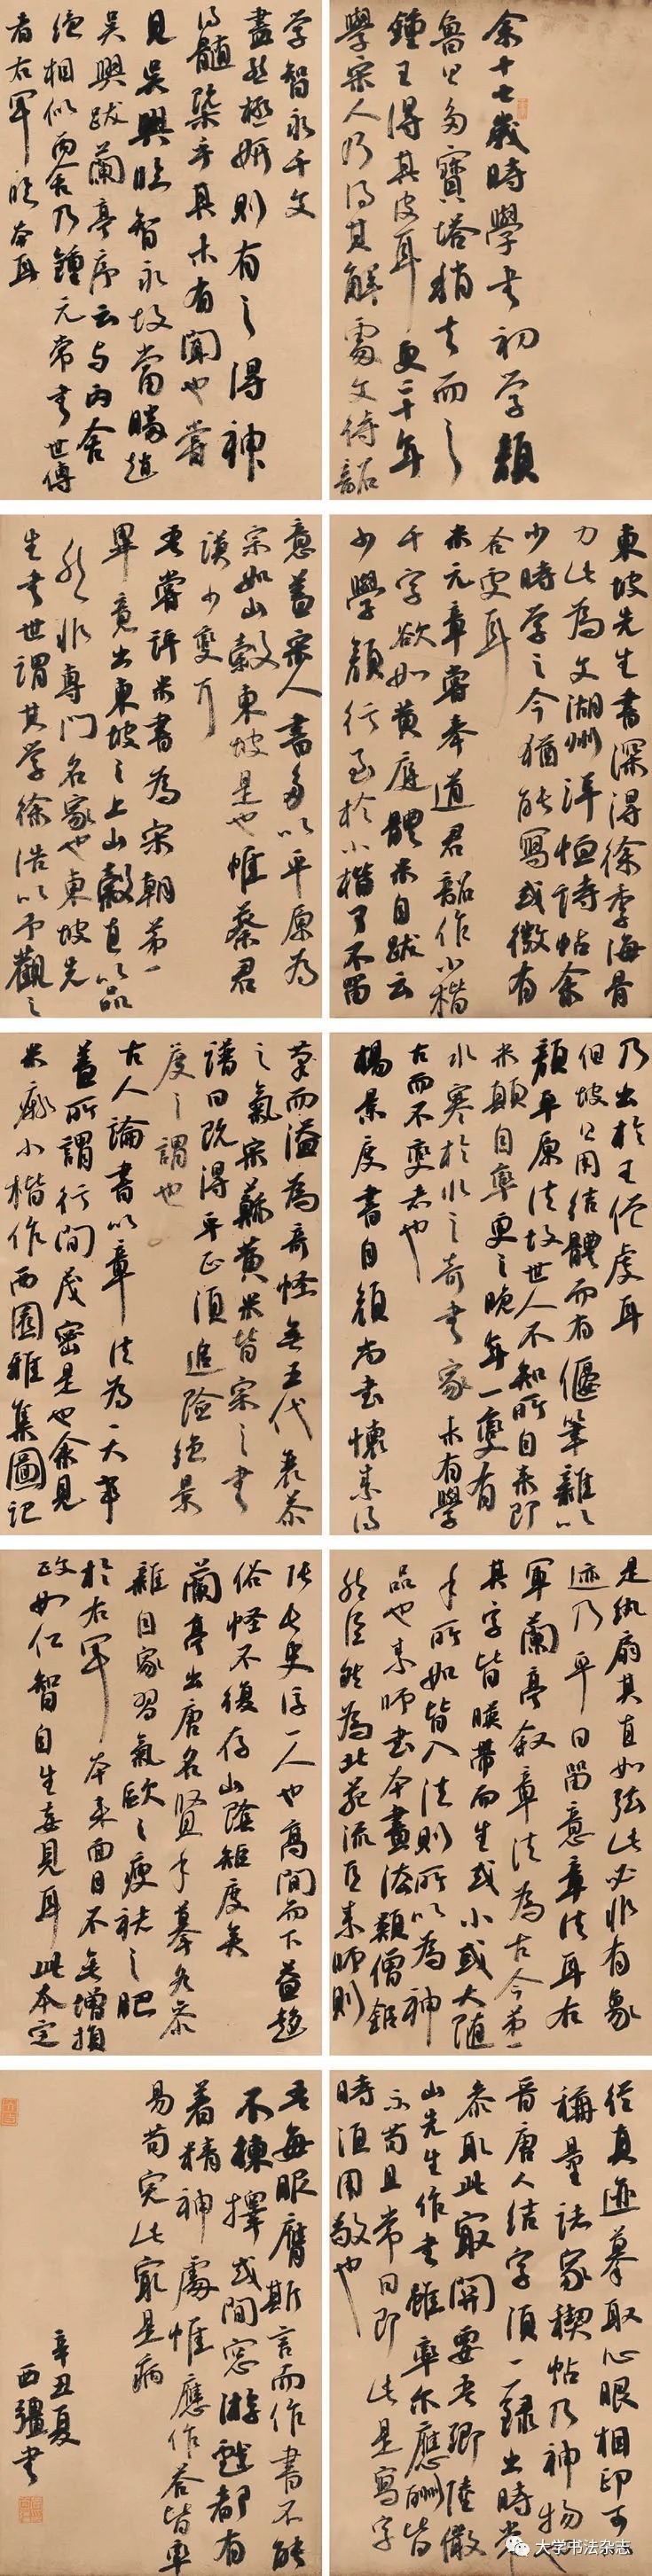 余十七歲時學书初学顏
魯公多寶塔稍去而之
鍾王得其皮耳更二十年
學宋人乃得其解處文待詔
学智永千文
盡態極妍則有之得神
得髓槩乎其未有聞也嘗
見吳興臨智永故當勝趙
吳興跋蘭亭序云与丙舍
絕相似丙舍乃鍾元常书世傳
者右軍臨本耳
東坡先生書深得徐季海骨
力此為文湖州洋詩帖余
少時学之今猶能寫或微有
合處耳
米元章嘗奉道君詔作小楷
千字欲如黄庭體米自跋云
少學顏行至於小楷了不留
意蓋宋人書多以平原為
宗如山穀東坡是也惟蔡君
謨少變耳
吾嘗評米書為宋朝第一
畢竟出東坡之上山穀直以品
勝然非專門名家也東坡先
生书世謂其学徐浩以予觀之
乃出於王僧虔耳
但坡公用結體而有偃筆雜以
顏平原法故世人不知所自来即
米顛自率更之晚年一變有
冰寒於水之奇书家未有學
古而不變者也
楊景度書自顏尚书懷素得
筆而溢為奇怪無五代衰苶
之氣宋蘇黄米皆宗之书
譜曰既得平正須追險絕景
度之謂也
古人論書以章法為一大事
蓋所謂行間茂密是也余見
米痴小楷作西園雅集圖記
是紈扇其直如弦此必非有象
迹乃平日留意章法耳右
軍蘭亭叙章法為古今第一
其字皆暎帶而生或小或大隨
手所如皆入法則所以為神
品也素師书本畫法類僧鉅
然巨然為北苑流亞素師則
張長史後一人也高閒而下益趨
俗怪不復存山陰矩度矣
蘭亭出唐名賢手摹各参
雜自家習氣歐之瘦褚之肥
於右軍本来面目不無增損
政如仁智自生妄見耳此本定
從真迹摹取心眼相印可以
稱量諸家禊帖乃神物也
晋唐人结字須一一録出時常
参取此最關要吾鄉陸儼
山先生作书雖率尔應酬皆
不苟且常曰即此是寫字
時須用敬也
吾每服膺斯言而作書不能
不揀擇或閒窓游戲都有
着精神處惟應作答皆率
易苟完此最是病
辛丑夏
西疆书
大学书法杂志